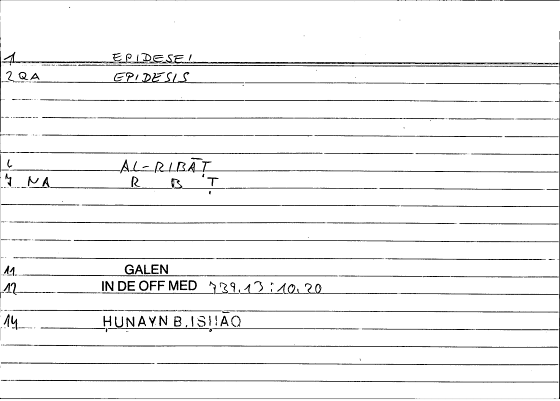 1 EPIDESEI
2 QA EPIDESIS
6 AL-RIBĀṬ
7 NA R B Ṭ
11 GALEN
12 IN DE OFF MED 739.13:10.20
14 ḤUNAYN B.ISḤĀQ